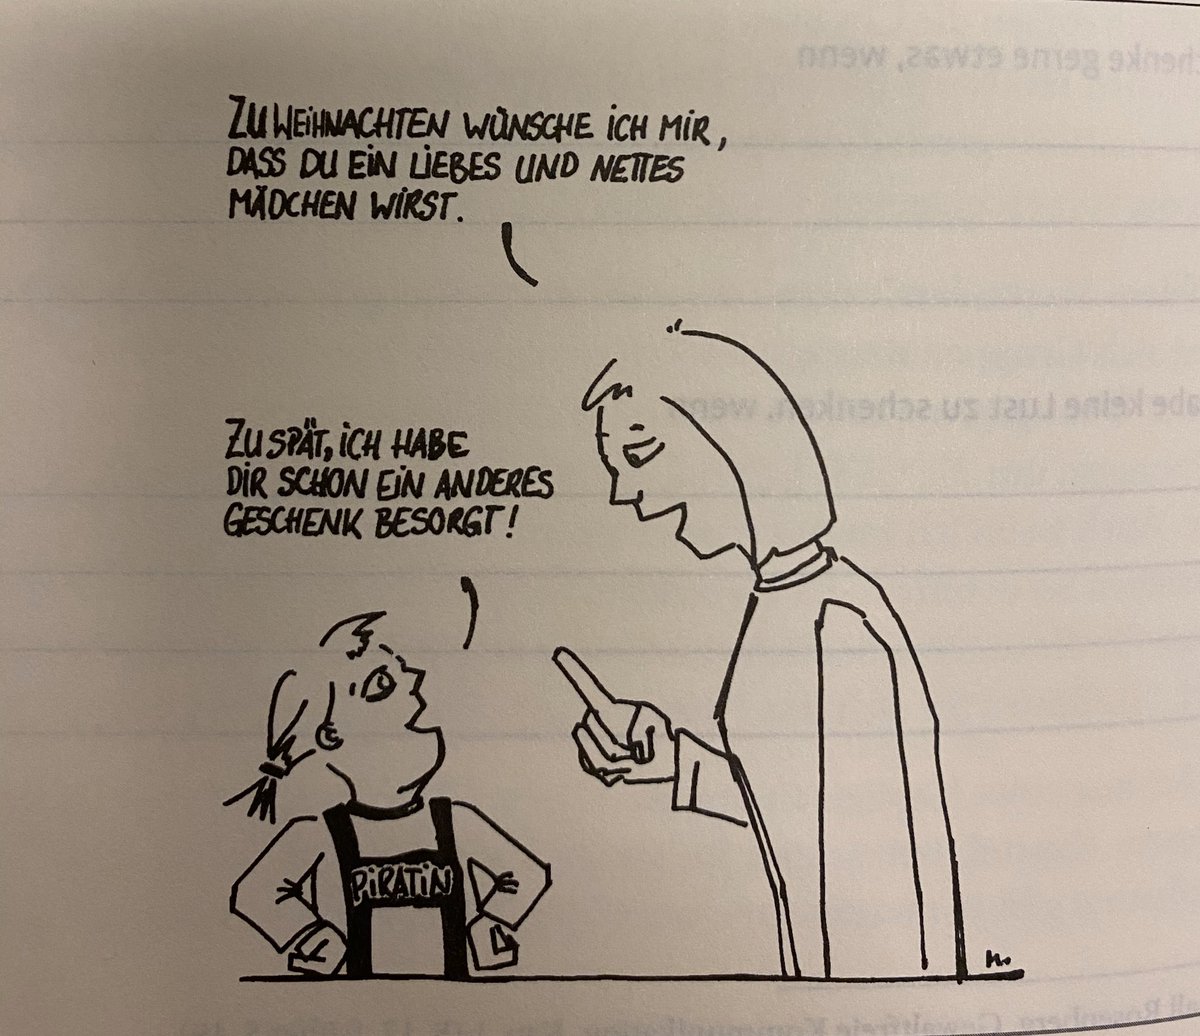 ZU WEIHNACHTEN WÜNSCHE ICH MIR,
DASS DU EIN LIEBES UND NETTES
MÄDCHEN WIRST.
ZU SPÄT, ICH HABE
DIR SCHON EIN ANDERES
GESCHENK BESORGT!
PIRATIN
gerne etwas, wenn
keine Lust zu schenken, wenn